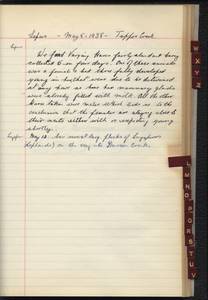 Lepus - May 5 - 1938 - Topper Creek
Lepus
We find Varying Hares fairly abundant having
collected 6 in four days. One of these animals
was a female & had three fully developed
young in her that were due to be delivered
at any hour as her mammary glands
were already filled with milk. All the other
hares taken were males which leads us to the
conclusion that the females are staying close to
their nests either with or expecting young
shortly.
May 12. Saw several large flocks of Longspurs
(Laplands) on the way into
W
X
Y
Z
L
M
N
O
P
Q
R
S
T
U
V